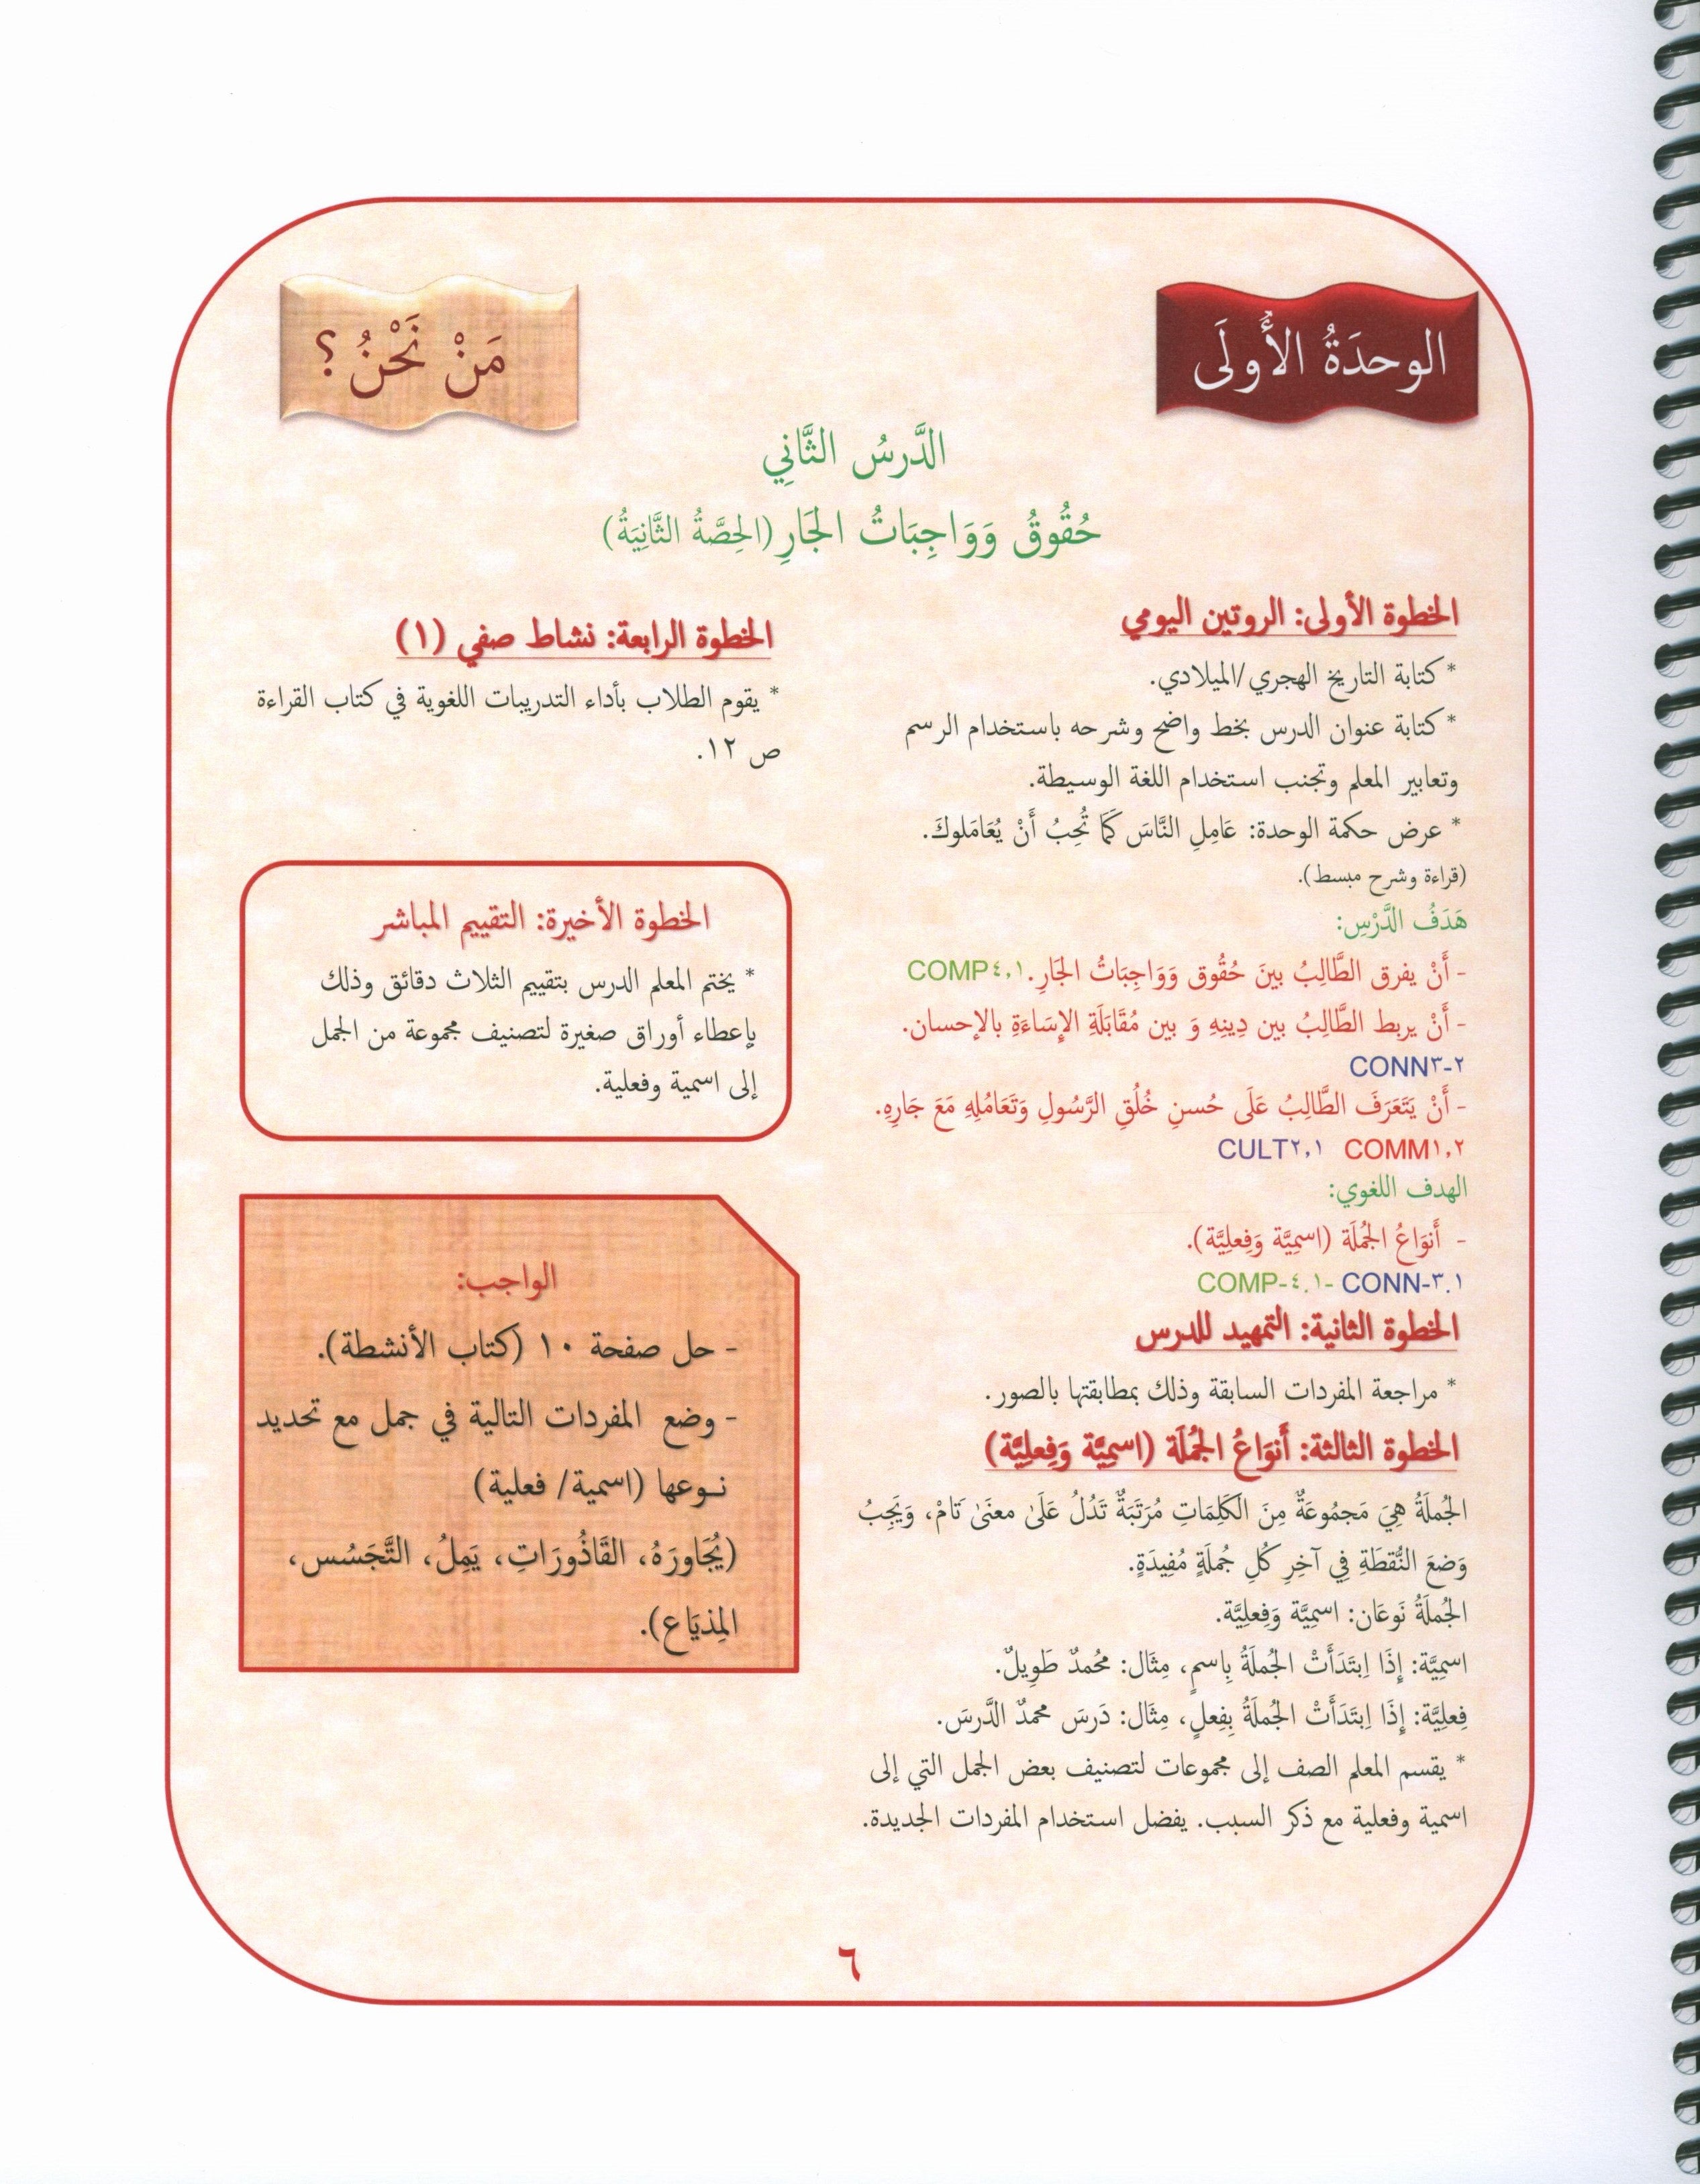 الوحدَةُ الأُولَى
مَنْ نَحْنُ ؟
الدَّرسُ الثَّانِي
حُقُوقُ وَوَاجِبَاتُ الجَارِ (الحِصَّةُ الثَّانِيَةُ)
الخطوة الأولى: الروتين اليومي
* كتابة التاريخ الهجري/الميلادي.
* كتابة عنوان الدرس بخط واضح وشرحه باستخدام الرسم
وتعابير المعلم وتجنب استخدام اللغة الوسيطة.
* عرض حكمة الوحدة: عَامِلِ النَّاسَ كَمَا تُحِبُ أَنْ يُعَامَلوكَ.
(قراءة وشرح مبسط).
هَدَفُ الدَّرْسِ:
- أَنْ يفرق الطَّالِبُ بينَ حُقُوق وَوَاجِبَاتُ الجَارِ. COMP٤,١
- أَنْ يربط الطَّالِبُ بين دِينِهِ وَ بين مُقَابَلَةِ الإِسَاءَةِ بالإحسان.
CONN٣-٢
- أَنْ يَتَعَرَفَ الطَّالِبُ عَلَى حُسنِ خُلُقِ الرَّسُولِ وَتَعَامُلِهِ مَعَ جَارِهِ.
CULT٢,١ COMM١,٢
الهدف اللغوي:
- أَنوَاعُ الجُملَة (اسمِيَّة وَفِعلِيَّة).
COMP-٤.١- CONN-٣.١
الخطوة الثانية: التمهيد للدرس
* مراجعة المفردات السابقة وذلك بمطابقتها بالصور.
الخطوة الثالثة: أَنوَاعُ الجُملَة (اسمِيَّة وَفِعلِيَّة)
الجُملَةُ هِيَ مَجمُوعَةٌ مِنَ الكَلِمَاتِ مُرَتَبَةٌ تَدُلُ عَلَىٰ معنَىٰ تَامْ، وَيَجِبُ
وَضعَ النُّقطَةِ فِي آخِرِ كُلِ جُملَةٍ مُفِيدَةٍ.
الجُملَةُ نَوعَان: اسمِيَّة وَفِعلِيَّة.
اسمِيَّة: إِذَا اِبتَدَأَتْ الجُملَةُ بِاسمٍ، مِثَال: مُحُمدٌ طَوِيلٌ.
فِعلِيَّة: إِذَا اِبتَدَأَتْ الجُملَةُ بِفِعلٍ، مِثَال: دَرسَ محمدٌ الدَّرسَ.
* يقسم المعلم الصف إلى مجموعات لتصنيف بعض الجمل التي إلى
اسمية وفعلية مع ذكر السبب. يفضل استخدام المفردات الجديدة.
الخطوة الرابعة: نشاط صفي (١)
* يقوم الطلاب بأداء التدريبات اللغوية في كتاب القراءة
ص ١٢.
الخطوة الأخيرة: التقييم المباشر
* يختم المعلم الدرس بتقييم الثلاث دقائق وذلك
بإعطاء أوراق صغيرة لتصنيف مجموعة من الجمل
إلى اسمية وفعلية.
الواجب:
- حل صفحة ١٠ (كتاب الأنشطة).
- وضع المفردات التالية في جمل مع تحديد
نوعها (اسمية/ فعلية)
(يُجَاورَهُ، القَاذُورَاتِ، يَمِلُ، التَّجَسُس،
المِذيَاع).
٦